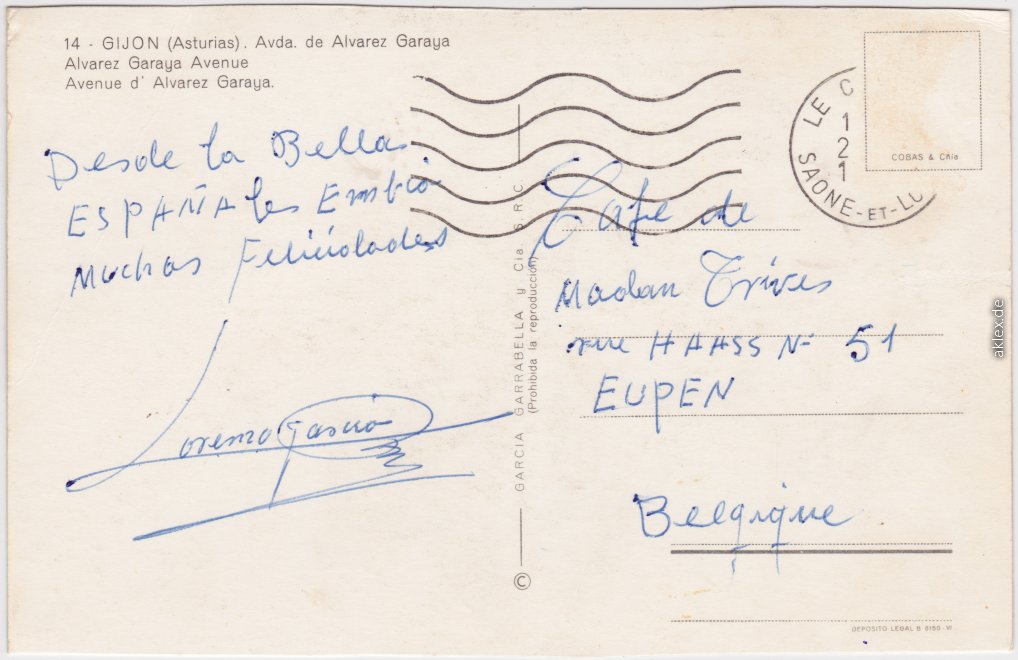 14 - GIJON (Asturias). Avda. de Alvarez Garaya
Alvarez Garaya Avenue
Avenue d' Alvarez Garaya.
Desde la Bella
ESPAÑA les Embio
Muchas Felicidades
Lorenzo Garcia
GARCIA GARRABELLA y Cia. S.R.C.
(Prohibida la reproducción)
©
LE C
1
2
1
SAONE-ET-LO
COBAS & Cñia
Cafe de
Madan Trives
rue HAASS Nº 51
EUPEN
Belgique
DEPOSITO LEGAL B 6150-VI
aklex.de